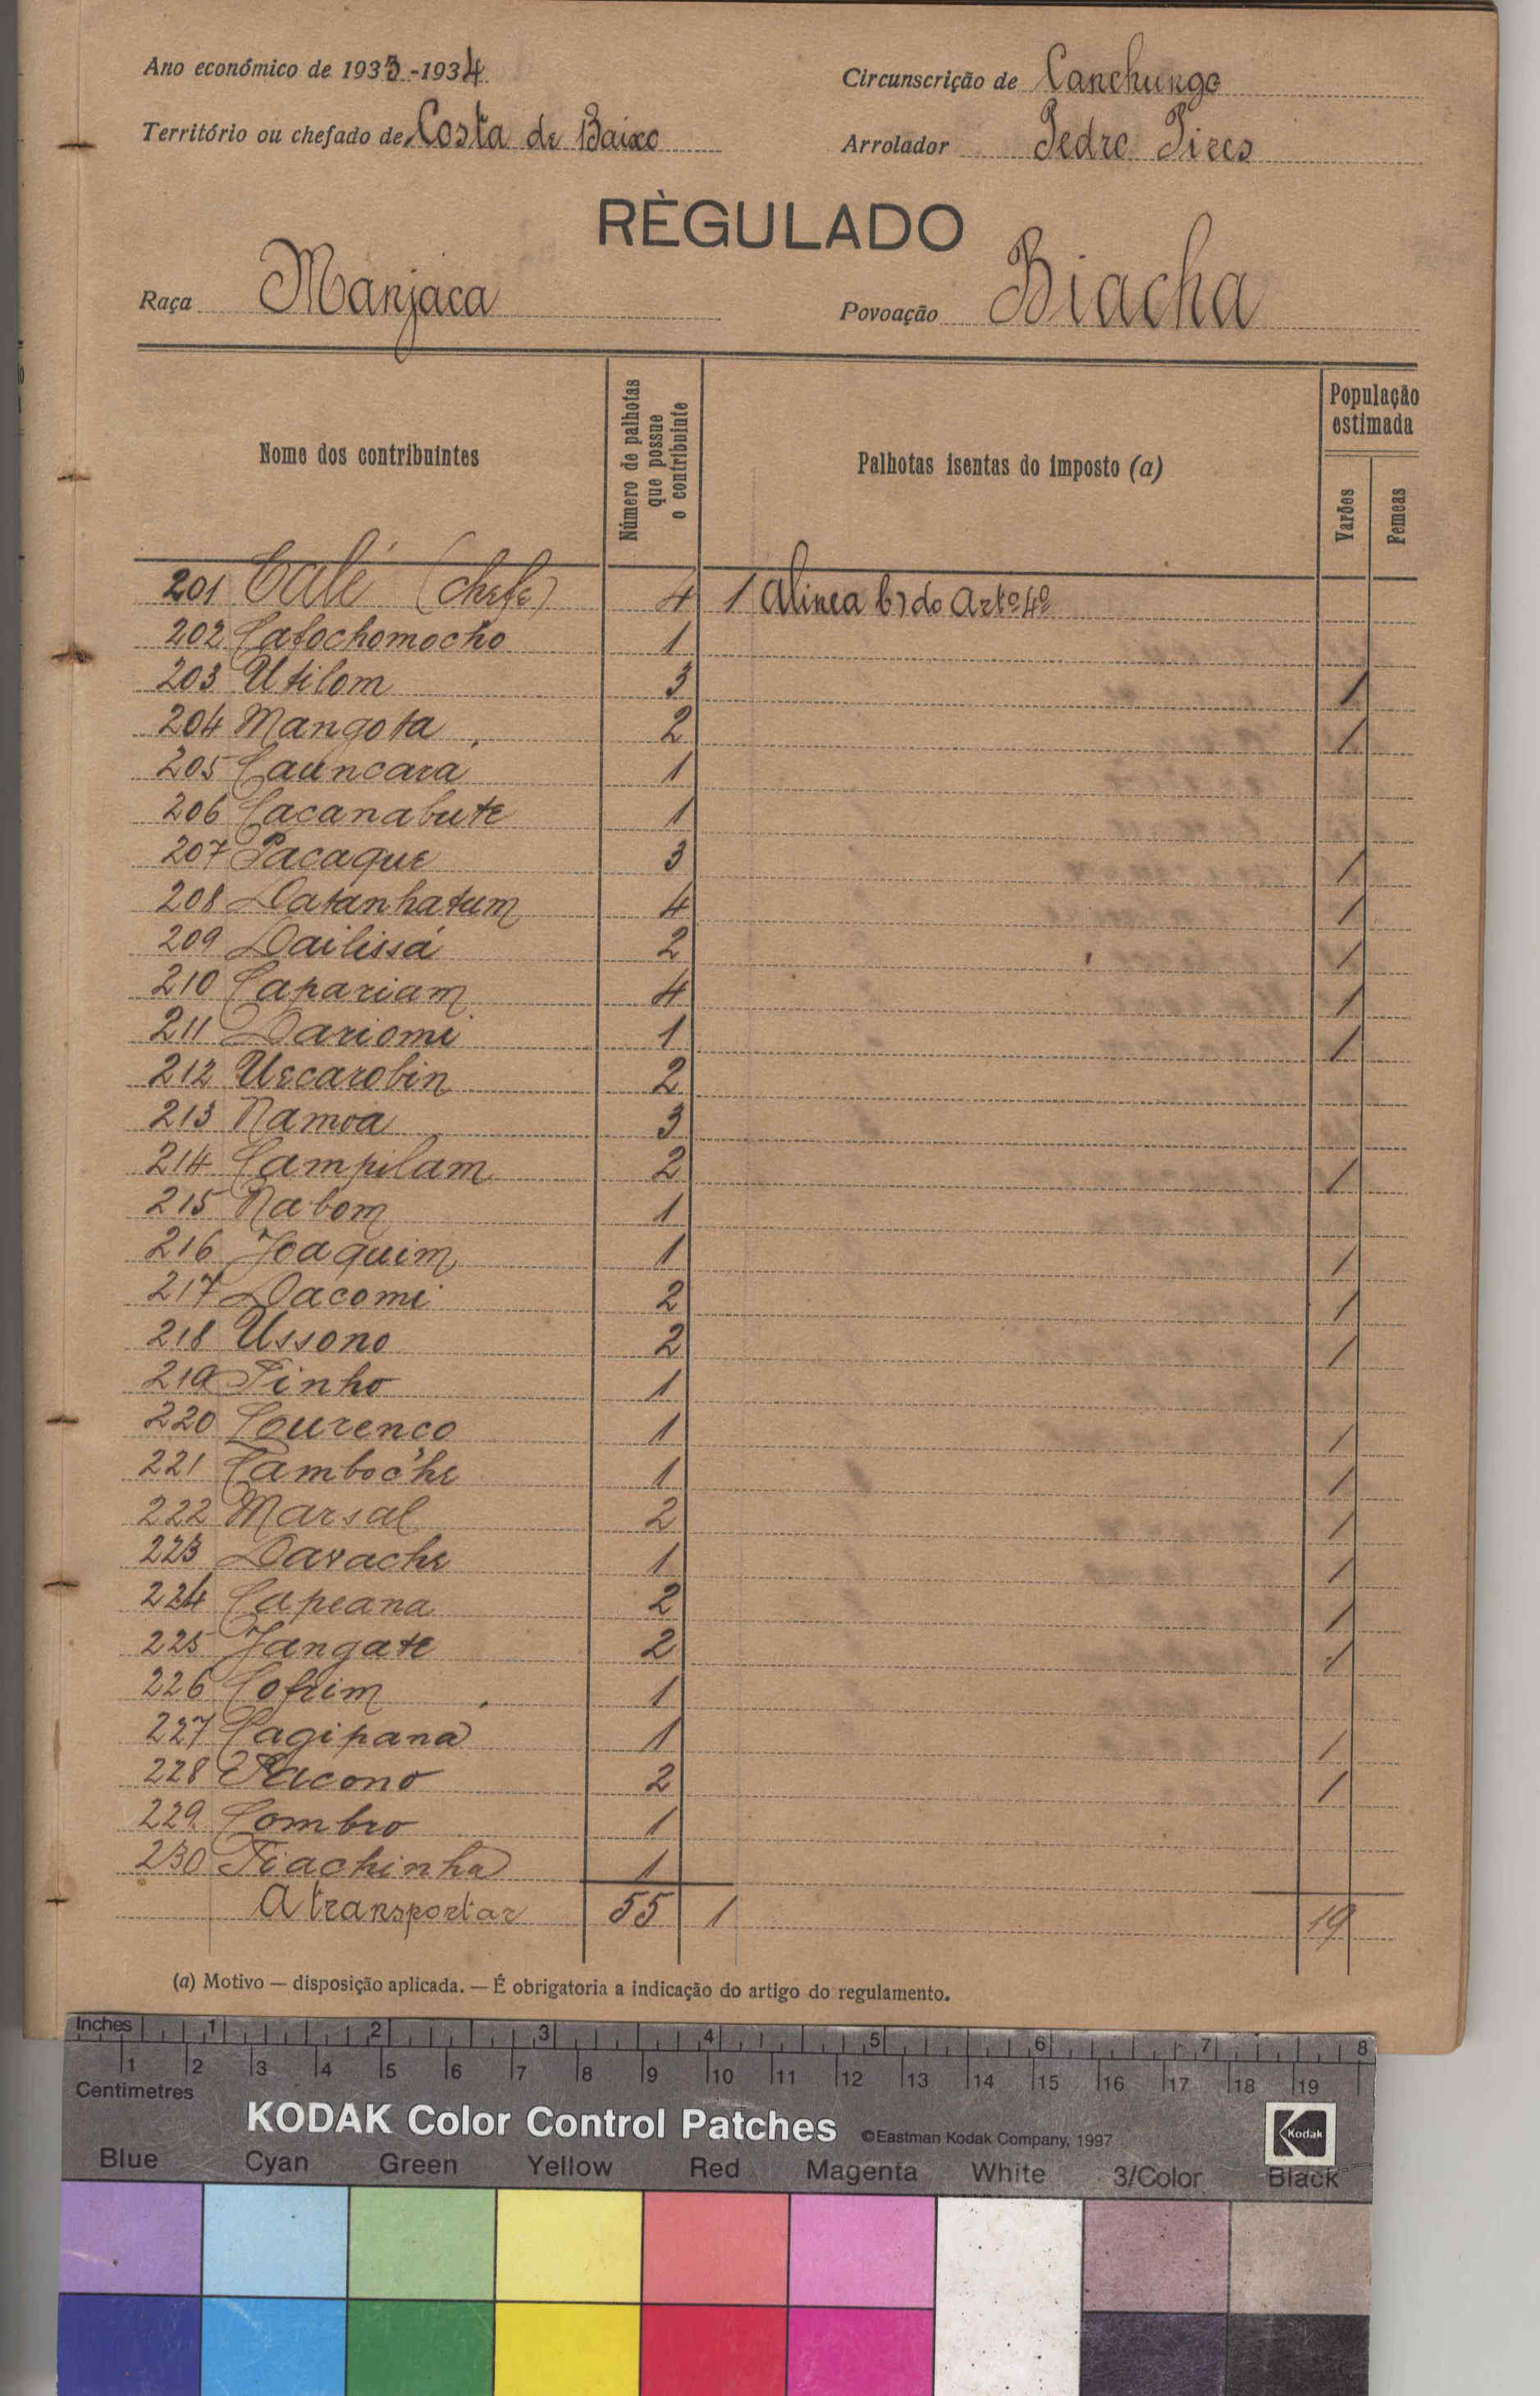 Ano económico de 1933-1934
Circunscrição de Canchungo
Território ou chefado de Costa de Baixo
Arrolador Pedro Pires
RÈGULADO
Raça Manjaca
Povoação Biacha
Nome dos contribuintes
Número de palhotas que possue o contribuinte
Palhotas isentas do imposto (a)
População estimada
Varões
Femeas
201 Calé (chefe) 4 1 Alinea b) do Artº 4º
202 Catochomocho 1
203 Utilom 3 1
204 Mangota 2 1
205 Cauncara 1
206 Cacanabute 1
207 Pacaque 3 1
208 Datanhatum 4 1
209 Dailissá 2 1
210 Capariam 4 1
211 Dariomi 1 1
212 Uecarobin 2
213 Namoa 3
214 Campilam 2 1
215 Nabom 1
216 Joaquim 1 1
217 Dacomi 2 1
218 Ussono 2 1
219 Pinho 1
220 Lourenço 1 1
221 Camboche 1 1
222 Marsal 2 1
223 Davache 1 1
224 Capeana 2 1
225 Jangate 2 1
226 Cofrim 1
227 Cagipana 1 1
228 Pacono 2 1
229 Combro 1
230 Fiachinha 1
A transportar 55 1 19
(a) Motivo — disposição aplicada. — É obrigatoria a indicação do artigo do regulamento.
Inches 1 2 3 4 5 6 7 8
1 2 3 4 5 6 7 8 9 10 11 12 13 14 15 16 17 18 19
Centimetres
KODAK Color Control Patches ©Eastman Kodak Company, 1997 Kodak
Blue Cyan Green Yellow Red Magenta White 3/Color Black